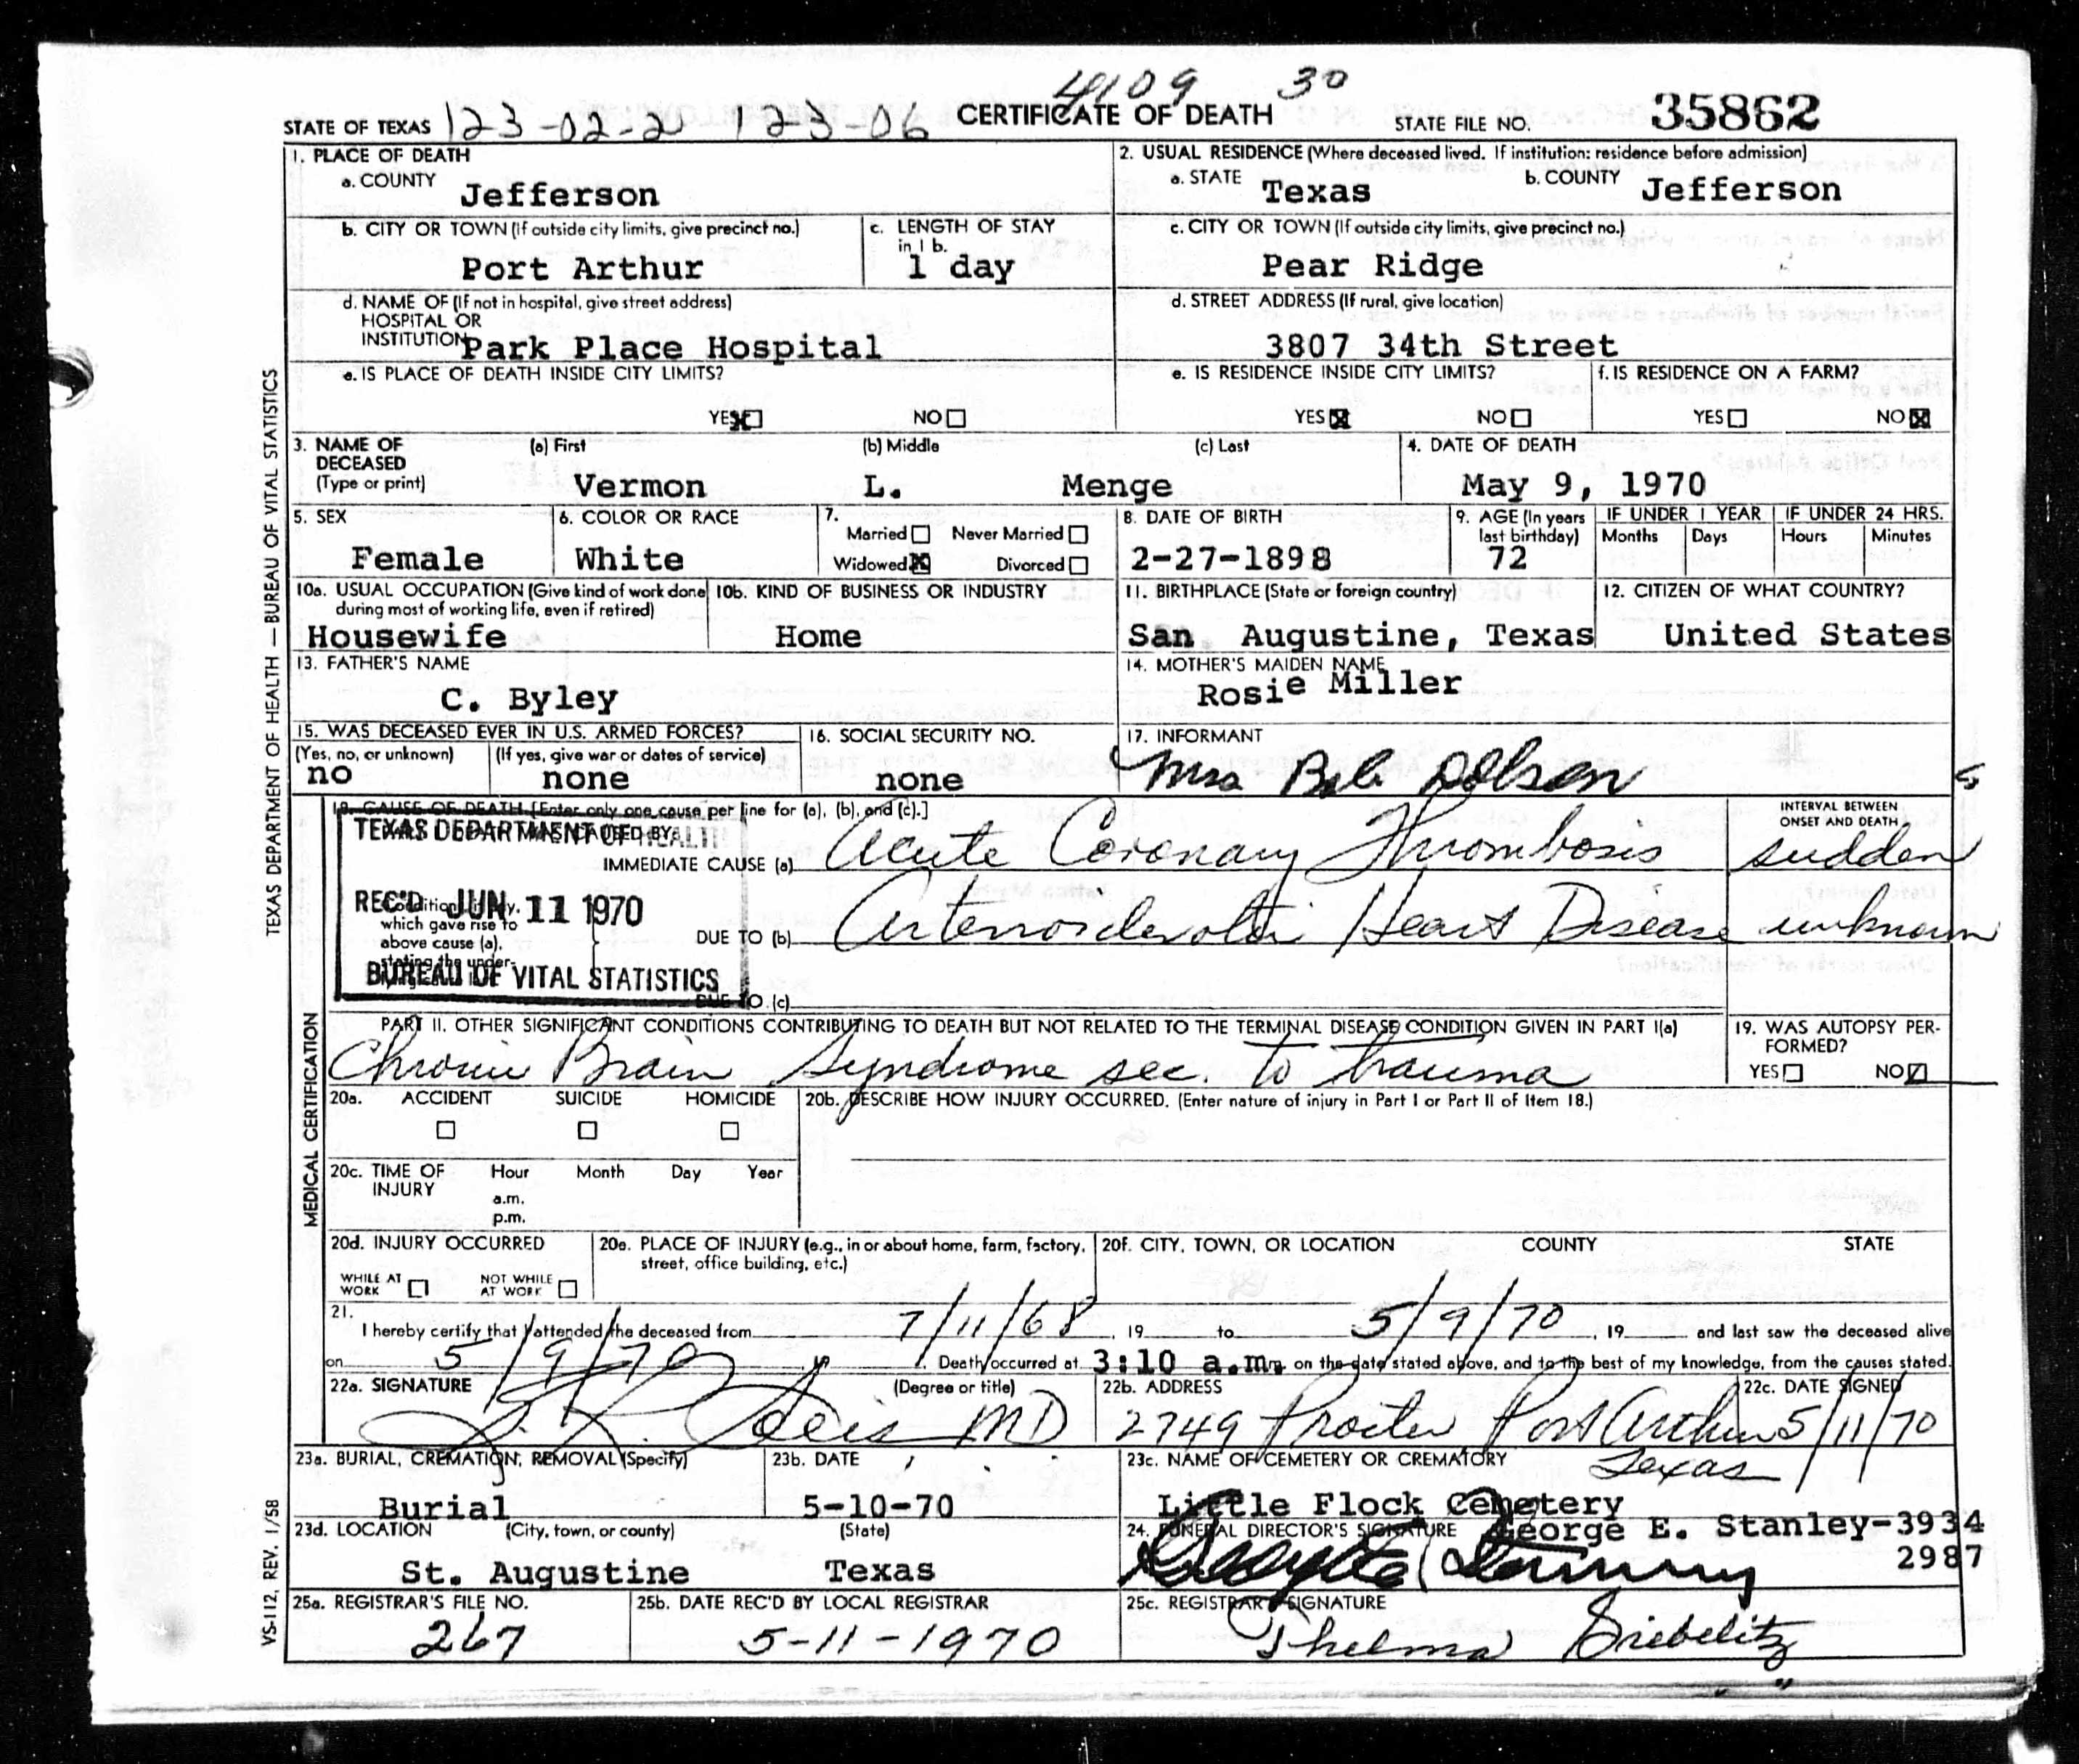 4109 30
STATE OF TEXAS 123-02-2 123-06 CERTIFICATE OF DEATH STATE FILE NO. 35862
1. PLACE OF DEATH
a. COUNTY Jefferson
2. USUAL RESIDENCE (Where deceased lived. If institution: residence before admission)
a. STATE Texas b. COUNTY Jefferson
b. CITY OR TOWN (If outside city limits, give precinct no.)
Port Arthur
c. LENGTH OF STAY
in 1 b.
1 day
c. CITY OR TOWN (If outside city limits, give precinct no.)
Pear Ridge
d. NAME OF (If not in hospital, give street address)
HOSPITAL OR
INSTITUTION Park Place Hospital
d. STREET ADDRESS (If rural, give location)
3807 34th Street
e. IS PLACE OF DEATH INSIDE CITY LIMITS?
YES NO
e. IS RESIDENCE INSIDE CITY LIMITS?
YES NO
f. IS RESIDENCE ON A FARM?
YES NO
3. NAME OF DECEASED (Type or print)
(a) First (b) Middle (c) Last
Vermon L. Menge
4. DATE OF DEATH
May 9, 1970
5. SEX
Female
6. COLOR OR RACE
White
7.
Married Never Married
Widowed Divorced
8. DATE OF BIRTH
2-27-1898
9. AGE (In years
last birthday)
72
IF UNDER 1 YEAR
Months Days
IF UNDER 24 HRS.
Hours Minutes
10a. USUAL OCCUPATION (Give kind of work done
during most of working life, even if retired)
Housewife
10b. KIND OF BUSINESS OR INDUSTRY
Home
11. BIRTHPLACE (State or foreign country)
San Augustine, Texas
12. CITIZEN OF WHAT COUNTRY?
United States
13. FATHER'S NAME
C. Byley
14. MOTHER'S MAIDEN NAME
Rosie Miller
15. WAS DECEASED EVER IN U.S. ARMED FORCES?
(Yes, no, or unknown) (If yes, give war or dates of service)
no none
16. SOCIAL SECURITY NO.
none
17. INFORMANT
Mrs
18. CAUSE OF DEATH [Enter only one cause per line for (a), (b), and (c).]
TEXAS DEPARTMENT OF HEALTH
REC'D JUN 11 1970
BUREAU OF VITAL STATISTICS
IMMEDIATE CAUSE (a) Acute Coronary Thrombosis
INTERVAL BETWEEN
ONSET AND DEATH
sudden
which gave rise to
above cause (a),
stating the under-
DUE TO (b) Heart Disease unknown
DUE TO (c)
PART II. OTHER SIGNIFICANT CONDITIONS CONTRIBUTING TO DEATH BUT NOT RELATED TO THE TERMINAL DISEASE CONDITION GIVEN IN PART I(a)
Chronic Brain Syndrome sec. to trauma
19. WAS AUTOPSY PER-
FORMED?
YES NO
20a. ACCIDENT SUICIDE HOMICIDE
20b. DESCRIBE HOW INJURY OCCURRED. (Enter nature of injury in Part I or Part II of Item 18.)
20c. TIME OF INJURY Hour Month Day Year
a.m.
p.m.
20d. INJURY OCCURRED
WHILE AT WORK NOT WHILE AT WORK
20e. PLACE OF INJURY (e.g., in or about home, farm, factory,
street, office building, etc.)
20f. CITY, TOWN, OR LOCATION COUNTY STATE
21.
I hereby certify that I attended the deceased from 7/11/68, 19 to 5/9/70, 19 and last saw the deceased alive
on 5/9/70. Death occurred at 3:10 a.m. on the date stated above, and to the best of my knowledge, from the causes stated.
22a. SIGNATURE (Degree or title)
MD
22b. ADDRESS
2749 Procter Port Arthur
Texas
22c. DATE SIGNED
5/11/70
23a. BURIAL, CREMATION, REMOVAL (Specify)
Burial
23b. DATE
5-10-70
23c. NAME OF CEMETERY OR CREMATORY
Little Flock Cemetery
23d. LOCATION (City, town, or county) (State)
St. Augustine Texas
24. FUNERAL DIRECTOR'S SIGNATURE George E. Stanley-3934
2987
25a. REGISTRAR'S FILE NO.
267
25b. DATE REC'D BY LOCAL REGISTRAR
5-11-1970
25c. REGISTRAR'S SIGNATURE
Thelma
TEXAS DEPARTMENT OF HEALTH — BUREAU OF VITAL STATISTICS
MEDICAL CERTIFICATION
VS-112, REV. 1/58